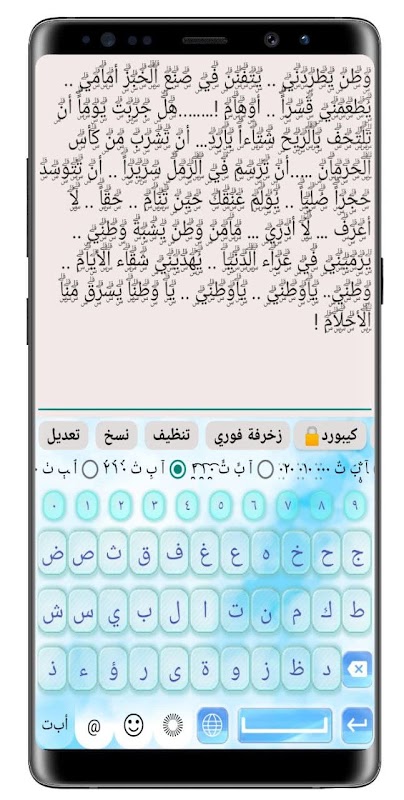 وَطَنٌ يَطْرُدُنِيْ .. يَتَفَنَّنُ فِيْ صُنْعِ الْخُبْزِ أَمَامِيْ ..
يُطْعِمُنِيْ قَسْراً .. أَوْهَامْ !........هَلْ جَرَّبْتَ يَوْماً أَنْ
تَلْتَحِفَ بِالرِّيْحِ شِتَاءاً بَارِدْ... أَنْ تَشْرَبَ مِنْ كَأْسِ
الْحِرْمَانْ .....أَنْ تَرْسُمَ فِيْ الرَّمْلِ سَرِيْراً .. أَنْ تَتَوَسَّدَ
حَجَراً صُلْباً .. يُؤْلِمُ عُنُقَكَ حِيْنَ تَنَامْ .. حَقّاً .. لَا
أَعْرِفُ ... لَا أَدْرِيْ ... مَامِنْ وَطَنٍ يُشْبِهُ وَطَنِيْ ..
يَرْمِيْنِيْ فِيْ عَرَاءِ الدُّنْيَا .. يُهْدِيْنِيْ شَقَاءَ الْأَيَّامْ ..
وَطَنِيْ.. يَاوَطَنِيْ .. يَاوَطَنِيْ .. يَا وَطَناً يَسْرِقُ مِنَّا
الْأَحْلَامْ !
كيبورد🔒 زخرفة فوري تنظيف نسخ تعديل
٠ ١ ٢ ٣ ٤ ٥ ٦ ٧ ٨ ٩
ض ص ث ق ف غ ع ه خ ح ج
ش س ي ب ل ا ت ن م ك ط
ذ ء ؤ ر ى ة و ز ظ د
أبت @